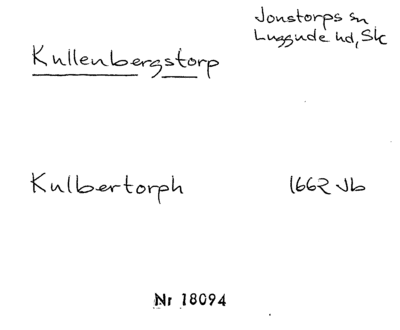 Jonstorps sn
Luggude hd, Sk
Kullenbergstorp
Kulbertorph 1662 Jb
Nr 18094